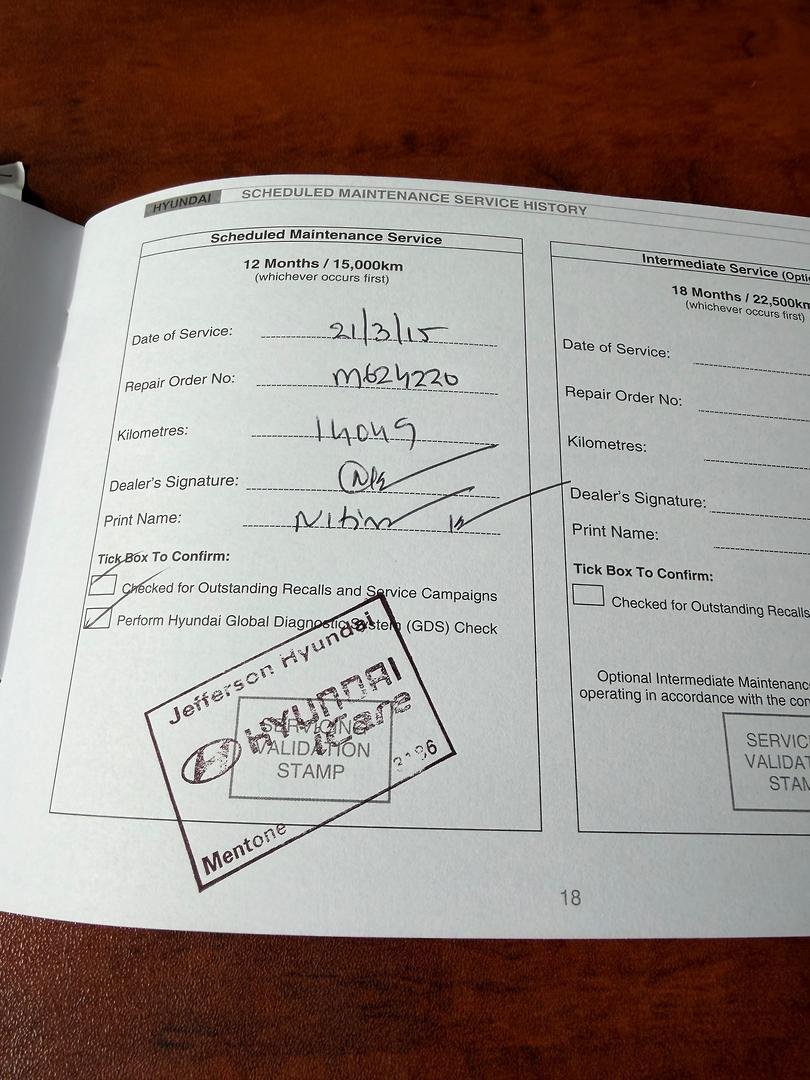 HYUNDAI SCHEDULED MAINTENANCE SERVICE HISTORY
Scheduled Maintenance Service
12 Months / 15,000km
(whichever occurs first)
Date of Service: 21/3/15
Repair Order No: M624220
Kilometres: 14049
Dealer's Signature:
Print Name: Nitin
Tick Box To Confirm:
Checked for Outstanding Recalls and Service Campaigns
Perform Hyundai Global Diagnostic System (GDS) Check
SERVICING
VALIDATION
STAMP
Jefferson Hyundai
HYUNDAI
iCare
3196
Mentone
Intermediate Service (Opti
18 Months / 22,500km
(whichever occurs first)
Date of Service:
Repair Order No:
Kilometres:
Dealer's Signature:
Print Name:
Tick Box To Confirm:
Checked for Outstanding Recalls
Optional Intermediate Maintenanc
operating in accordance with the con
SERVIC
VALIDAT
STAM
18